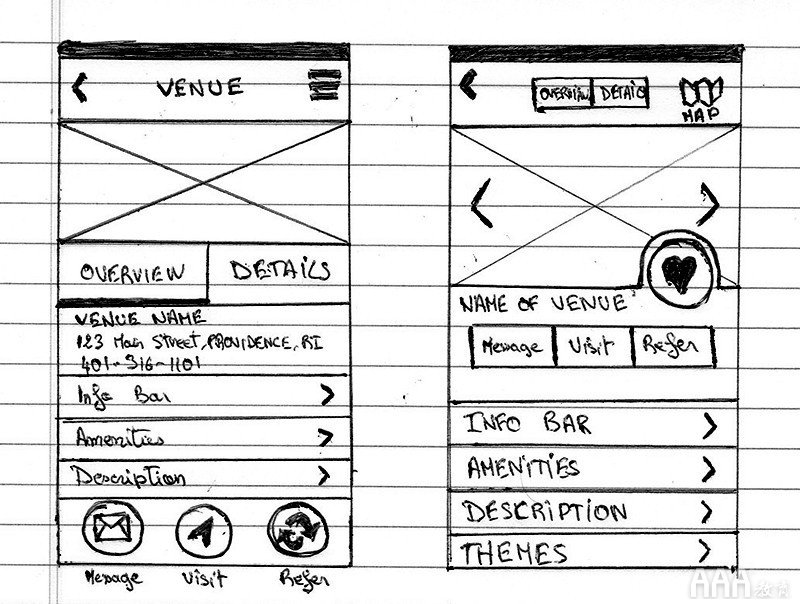 VENUE
OVERVIEW DETAILS
VENUE NAME
123 Main Street, PROVIDENCE, RI
401-316-1101
Info Bar
Amenities
Description
Message Visit Refer
OVERVIEW DETAILS
MAP
NAME OF VENUE
Message Visit Refer
INFO BAR
AMENITIES
DESCRIPTION
THEMES
AAA教育